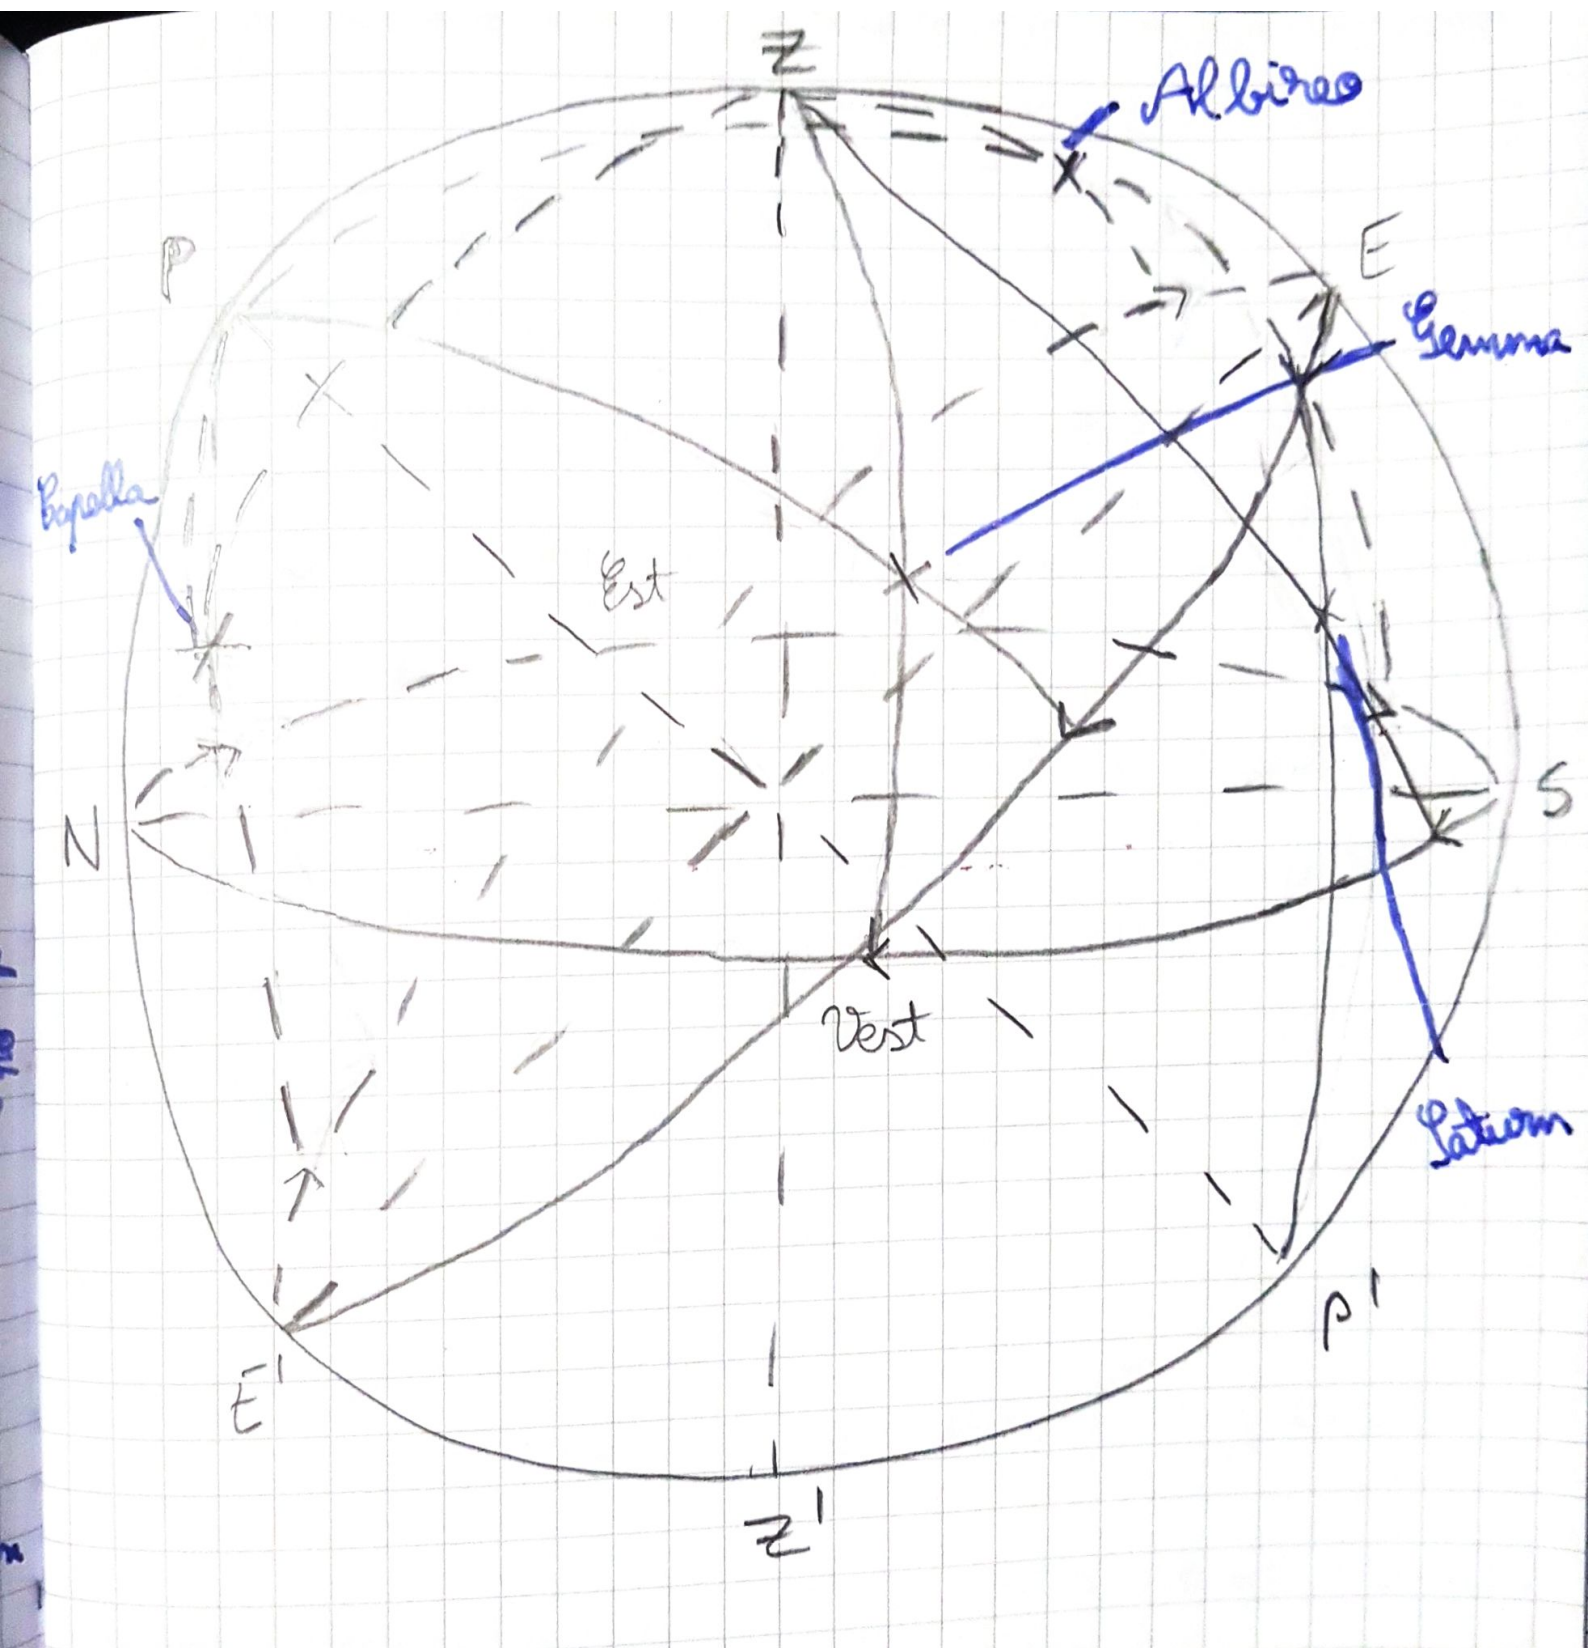 Z
Albireo
P
E
Gemma
Capella
Est
N
S
Vest
Saturn
P'
E'
Z'